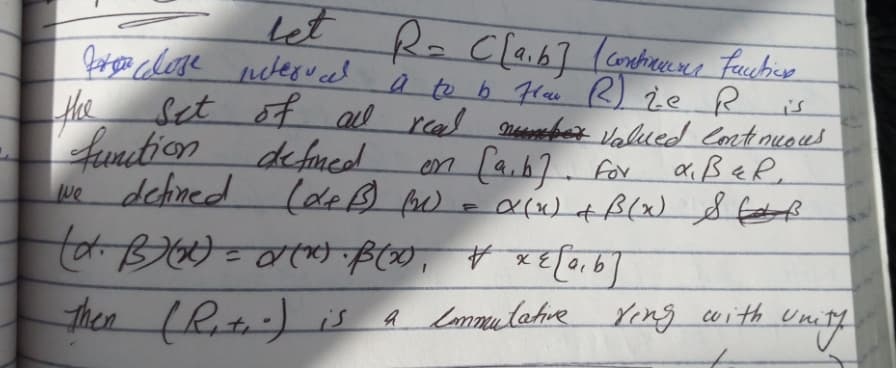 Let R = C[a,b] (continuous function
close interval a to b then R) i.e R is
the set of all real valued continuous
function defined on [a,b]. For α,β ε R,
we defined (α+β)(x) = α(x) + β(x) &
(α.β)(x) = α(x).β(x), ∀ x ε [a,b]
then (R,+,.) is a commutative ring with unity